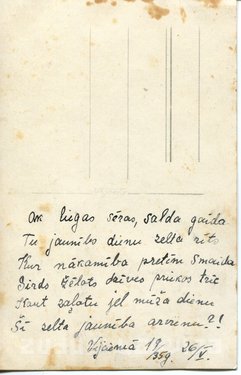 Ak liegas sēras, salda gaida
Tu jaunības dienu zelta rīts
Kur nākamība pretim smaida
Sirds dzīves priekos trīc
Kaut zaļotu jel mūža dienu
Šī zelta jaunība arvienu?!
19/35g. 26/V.